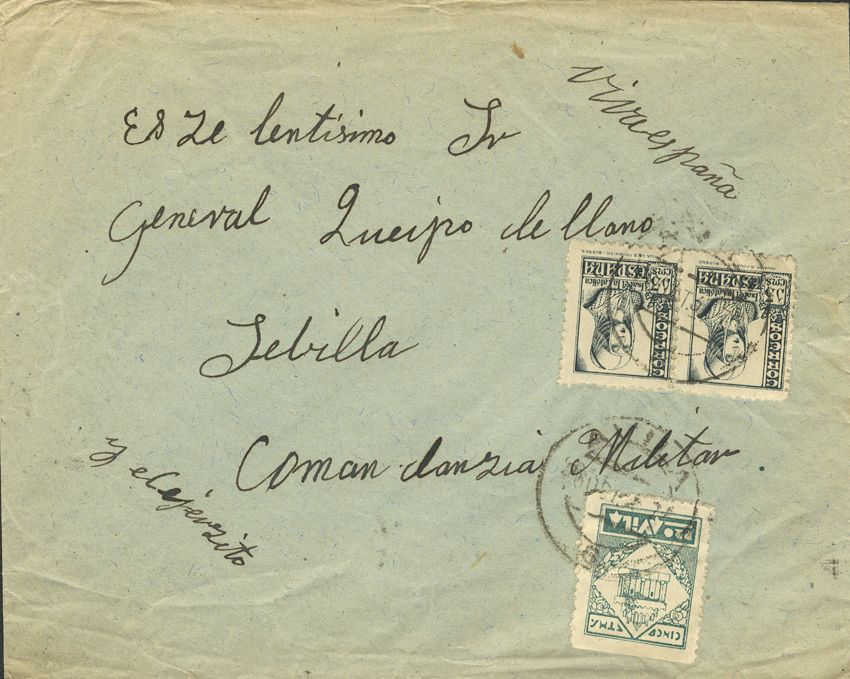 Viva españa
Es Ze lentísimo Sr
General Queipo de llano
Sebilla
Coman danzia Militar.
y el ejerzito
CORREOS
ESPAÑA
15 CTS
Isabel la Católica
CORREOS
ESPAÑA
15 CTS
Isabel la Católica
PRO AVILA
CINCO CTMS